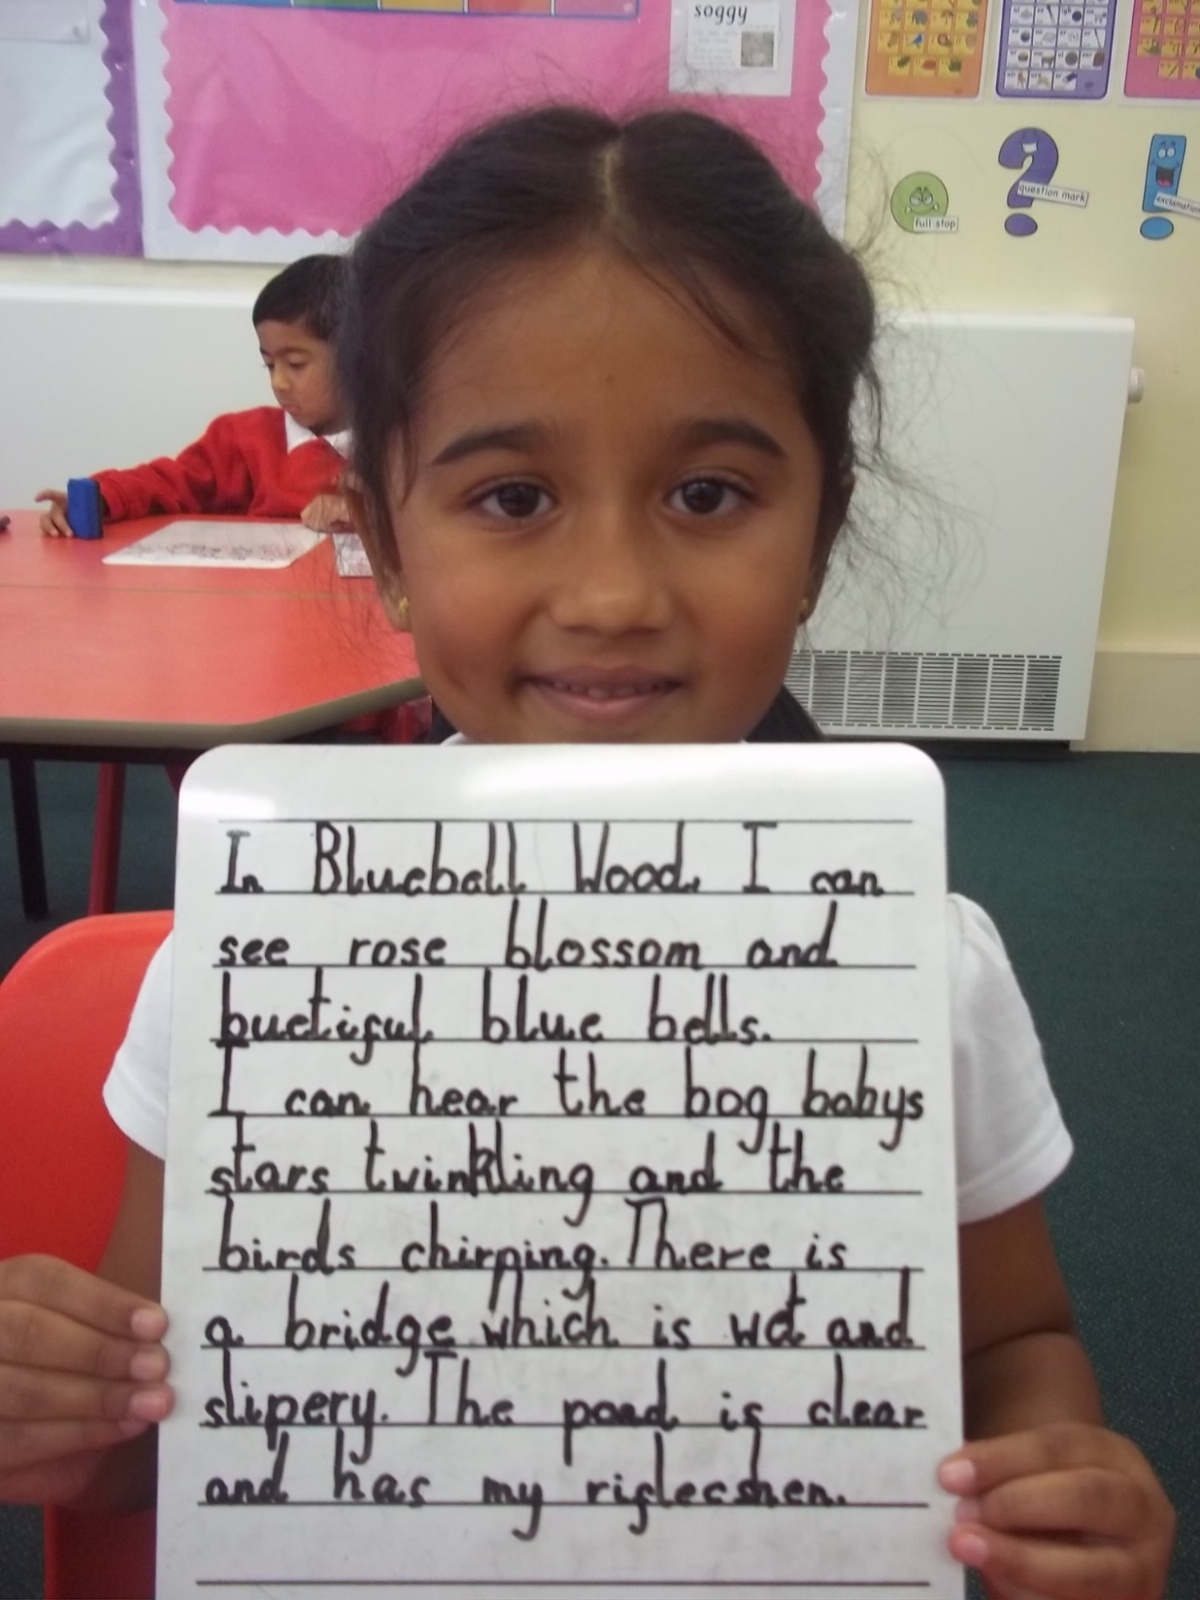 soggy
full stop
question mark
In Blueball Wood, I can
see rose blossom and
buetiful blue bells.
I can hear the bog babys
stars twinkling and the
birds chirping. There is
a bridge which is wet and
slipery. The pond is clear
and has my riflecshen.